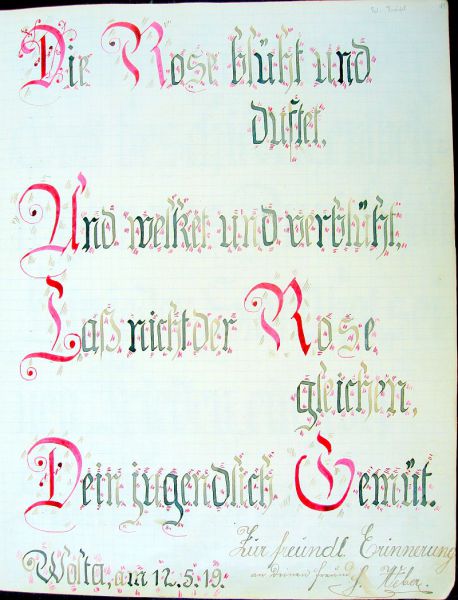 Die Rose blüht und
duftet,
Und welket und verblüht,
Laß nicht der Rose
gleichen,
Dein jugendlich Gemüt.
Zur freundl. Erinnerung
an deinen Freund
Weber.
Wolta, am 12.5.19.